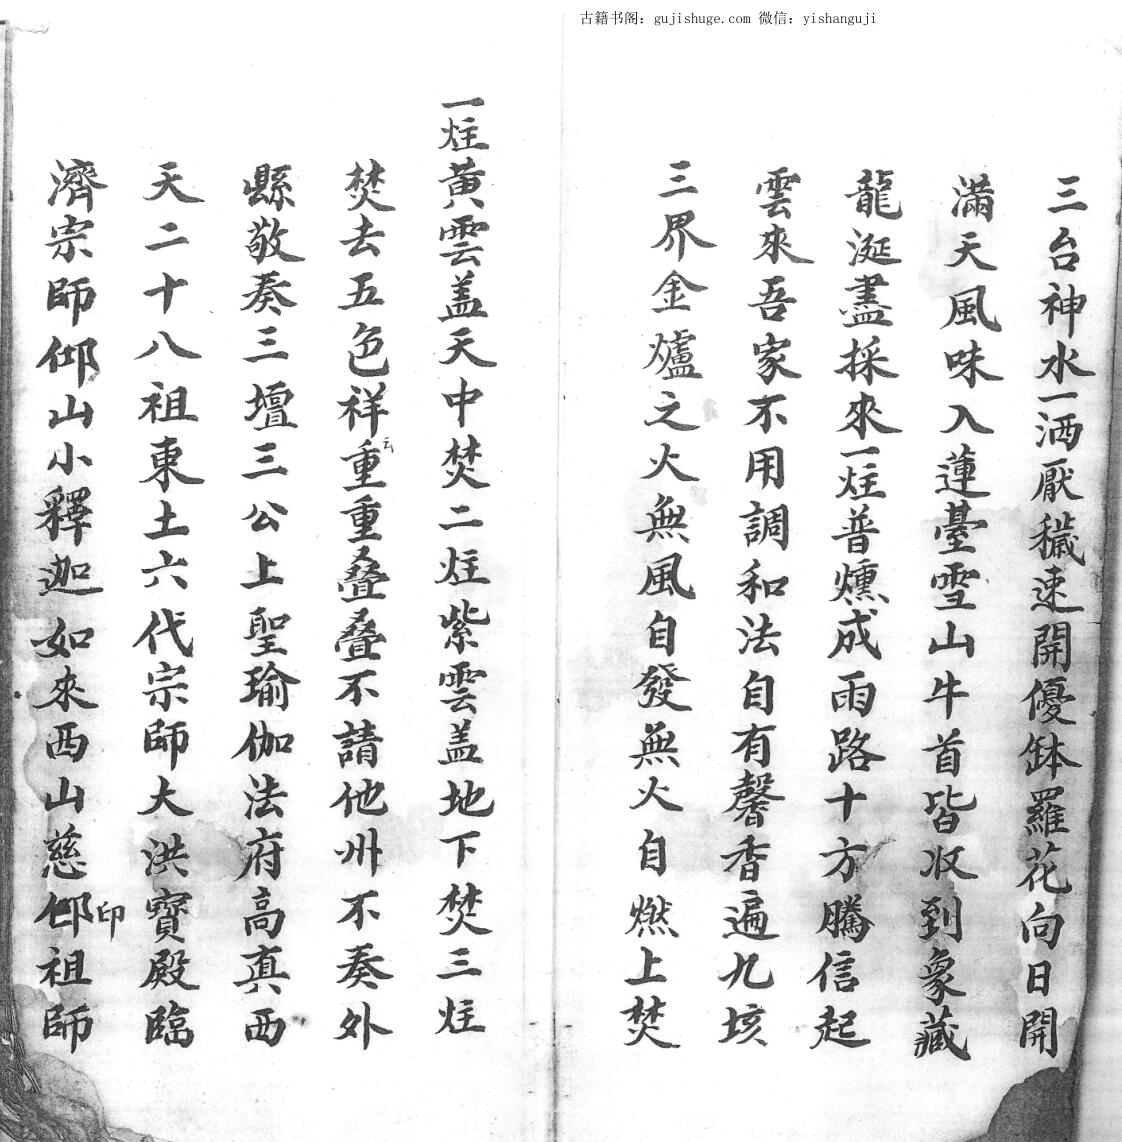 古籍书阁: gujishuge.com 微信: yishanguji
三台神水一洒厭穢速開優鉢羅花向日開
滿天風味入蓮臺雪山牛首皆収到象藏
龍涎盡採來一炷普燻成雨路十方騰信起
雲來吾家不用調和法自有馨香遍九垓
三界金爐之火無風自發無火自燃上焚
一炷黄雲盖天中焚二炷紫雲盖地下焚三炷
焚去五色祥云重重叠叠不請他州不奏外
縣敬奏三壇三公上聖瑜伽法府高真西
天二十八祖東土六代宗師大洪寶殿臨
濟宗師仰山小釋迦如來西山慈印祖師